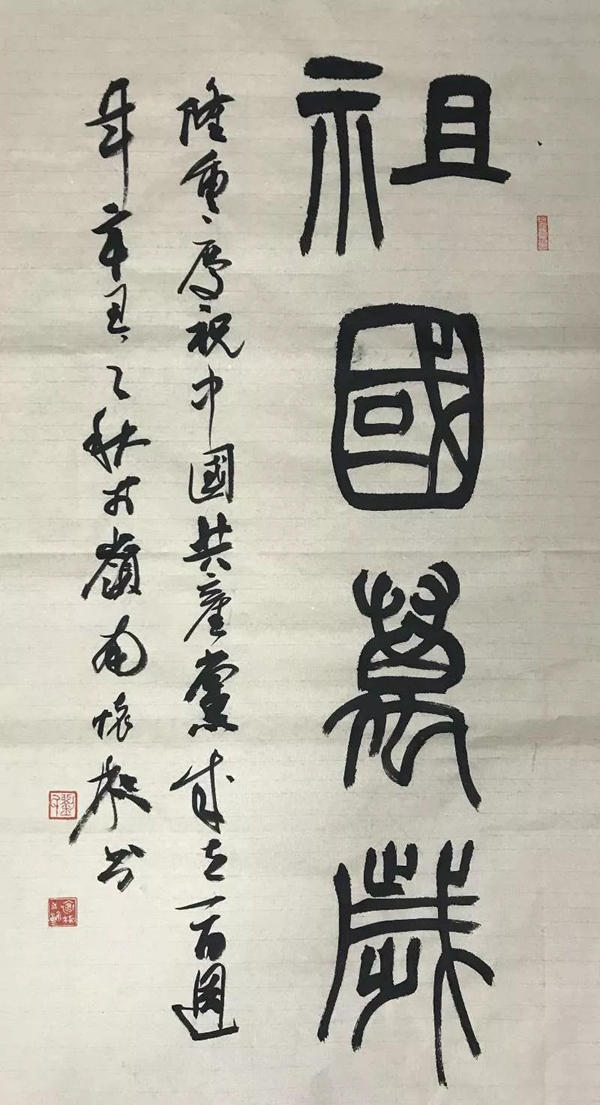 祖國萬歲
隆重慶祝中國共產黨成立一百週
年辛丑之秋於嶺南懷嶽書